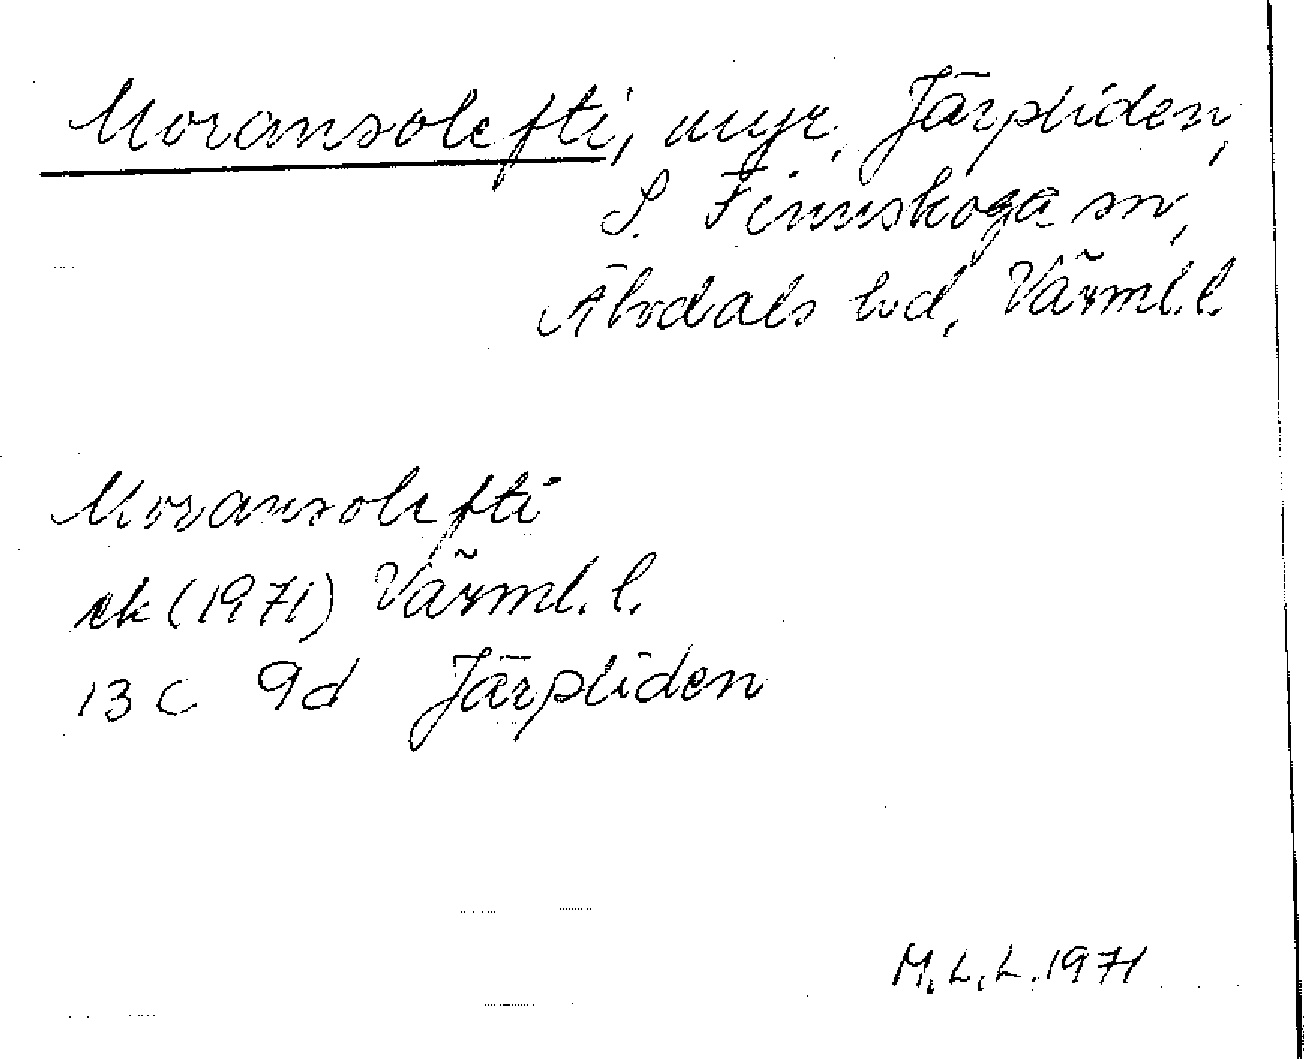 Moransolefti, myr, Järpliden,
S. Finnskoga sn,
Älvdals hd, Värml.l.
Moransolefti
ek (1971) Värml.l.
13 C 9d Järpliden
M.L.L. 1971